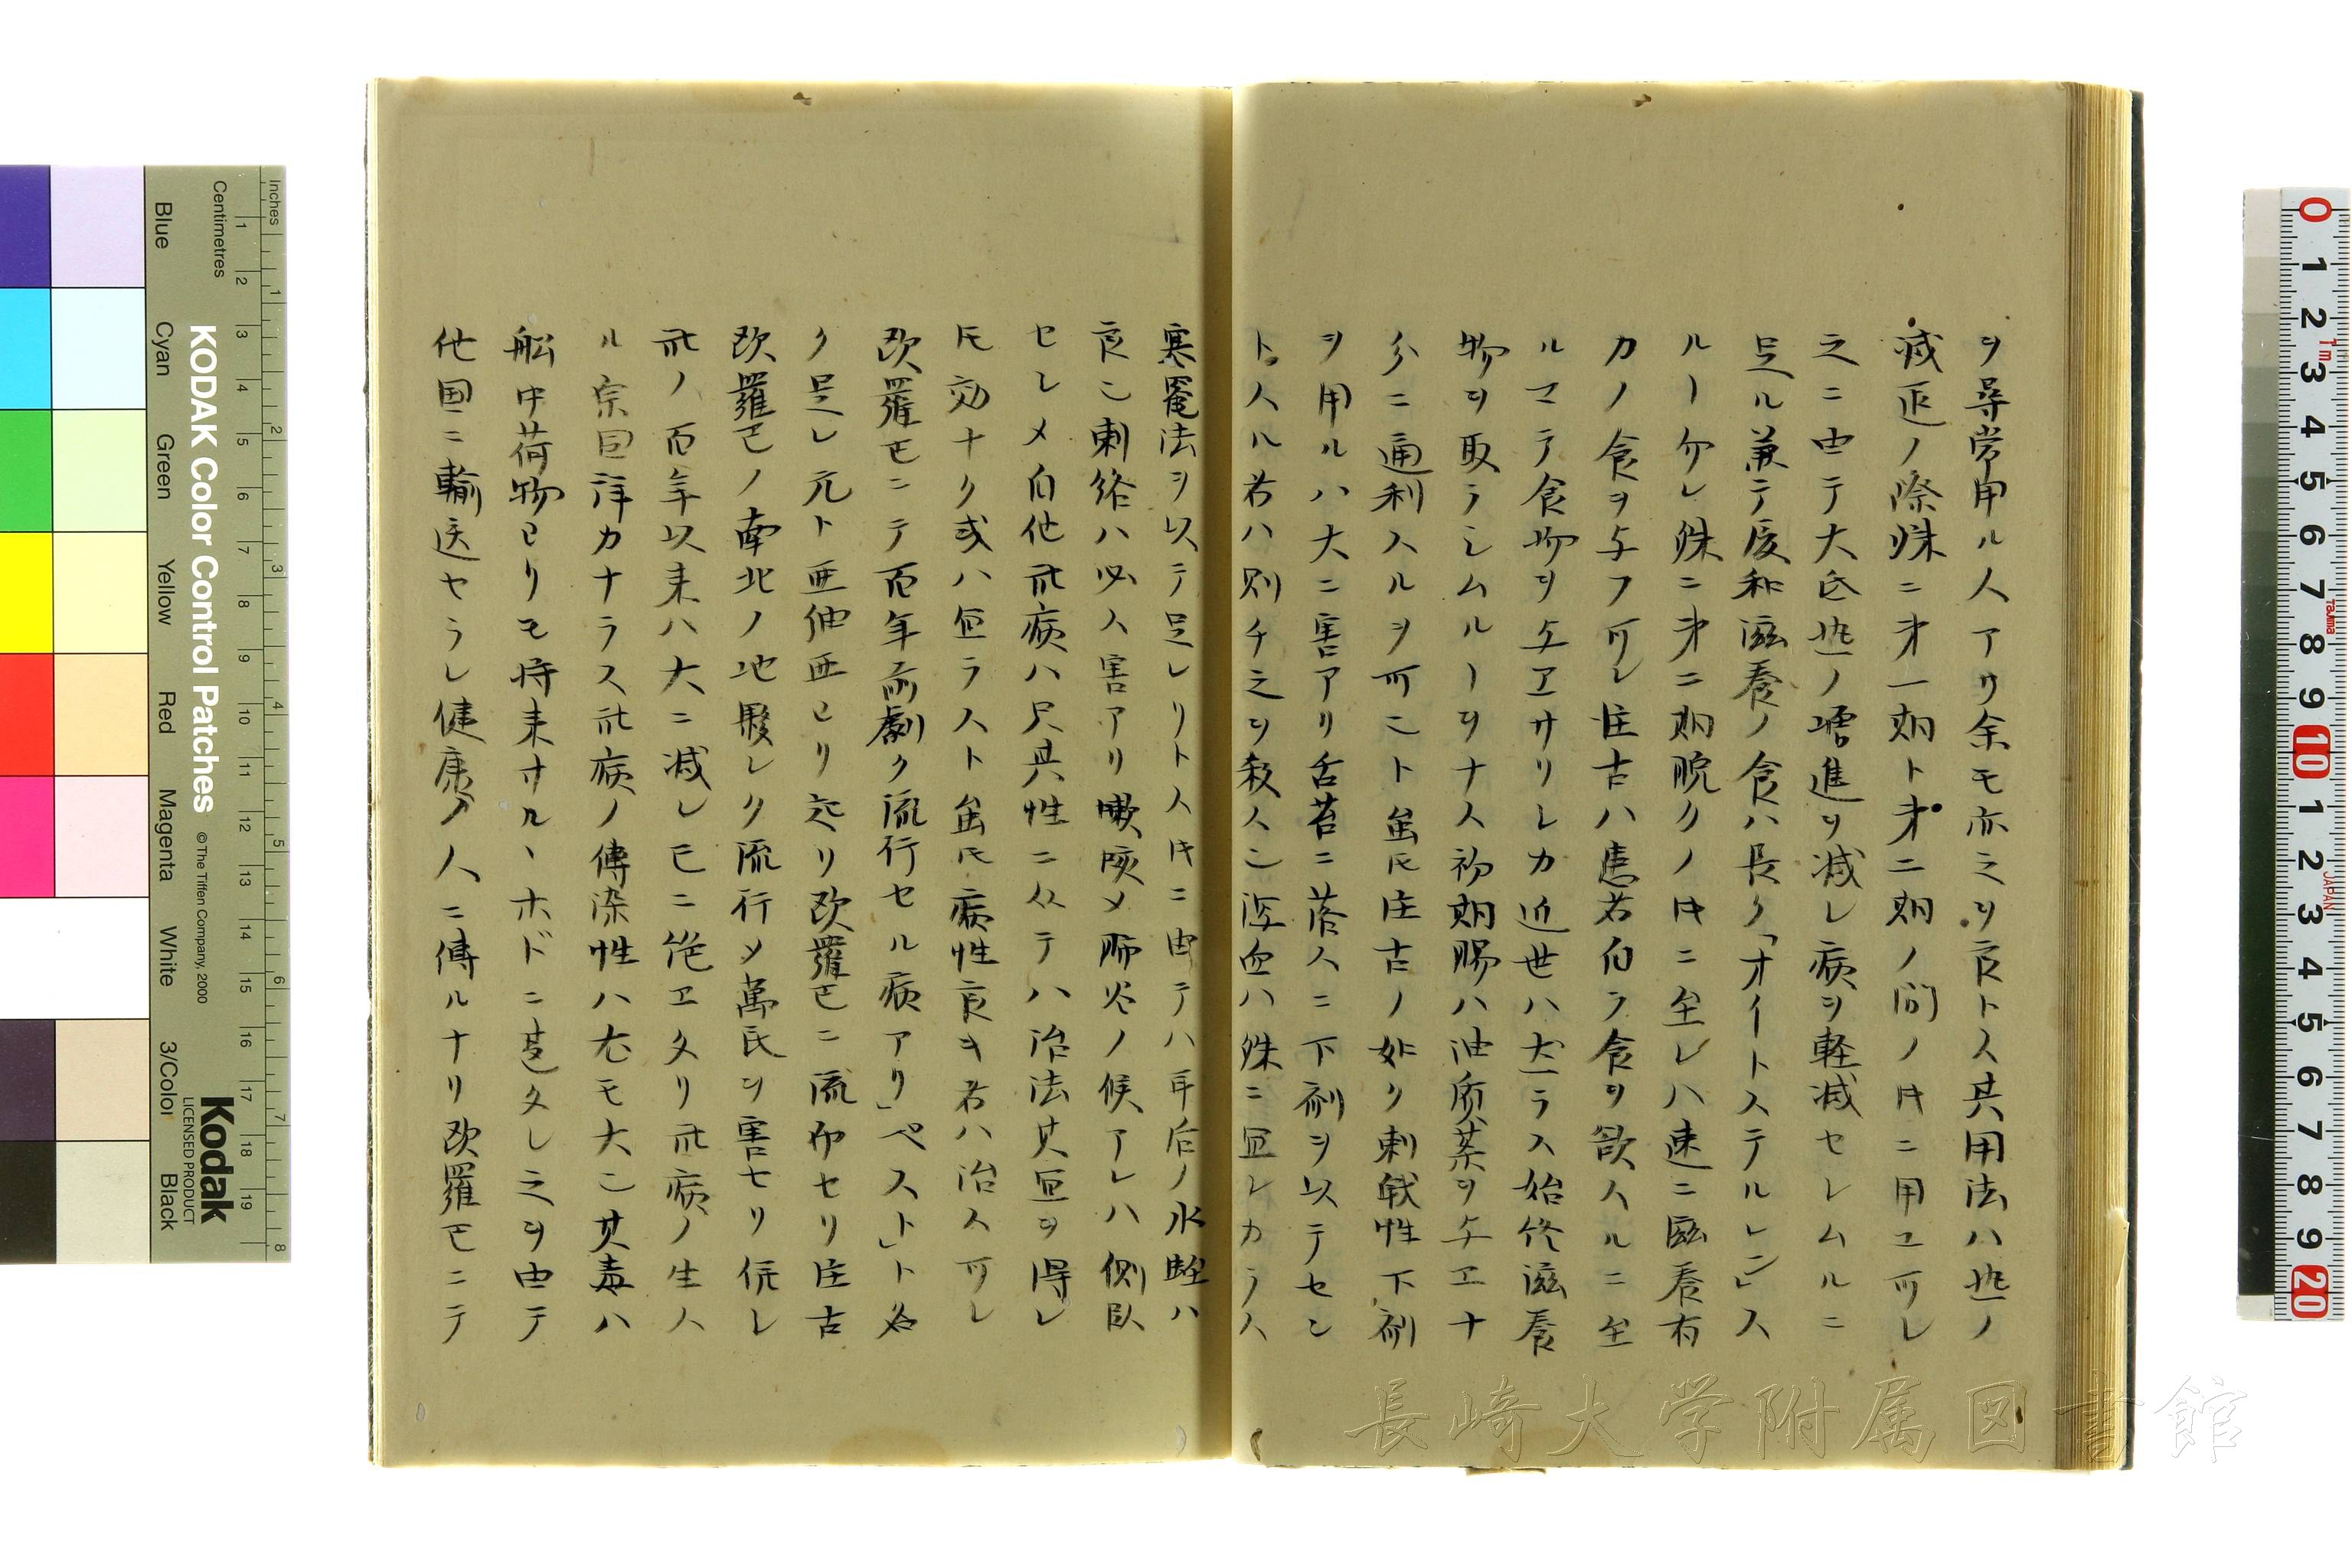 ヲ尋常用ル人アリ余モ亦之ヲ良トス其用法ハ熱ノ
減退ノ際殊ニ才一期ト才二期ノ間ノ时ニ用ユ可レ
之ニ由テ大ニ熱ノ増進ヲ減レ病ヲ軽減セレムルニ
足ル兼テ緩和滋養ノ食ハ長ク「オイトステルレン」ス
ルーケレ殊ニ才二期脱クノ时ニ至レハ速ニ滋養有
カノ食ヲ与フ可レ往古ハ患者自ラ食ヲ欲スルニ至
ルマテ食物ヲ与エサリレカ近世ハ大ラス始終滋養
物ヲ取ラシムルーヲナス初期腸ハ油质薬ヲ与エナ
分ニ通利スルヲ可ニト虽氏往古ノ如ク刺戟性下剤
ヲ用ルハ大ニ害アリ舌苔ニ落スニ下剤ヲ以テセン
トスル者ハ則チ之ヲ殺スニ瀉血ハ殊ニ宜レカラス
寒罨法ヲ以テ足レリトス时ニ由テハ耳后ノ水蛭ハ
良シ刺絡ハ必ス害アリ嗽咳メ肺炎ノ候アレハ側臥
セレメ自他此病ハ只其性ニ从テハ治法其宜ヲ得レ
氏効ナク或ハ宜ラスト虽氏病性良キ者ハ治ス可レ
欧羅巴ニテ百年前劇ク流行セル病アリ「ペスト」ト名
ク是レ元ト亜細亜ヨリ起リ欧羅巴ニ流布セリ往古
欧羅巴ノ南北ノ地殿レク流行メ萬民ヲ害セリ併レ
此ノ百年以来ハ大ニ減レ已ニ絶エタリ此病ノ生ス
ル宗因詳カナラス此病ノ傳染性ハ尤モ大ニ其毒ハ
船中荷物ヨリモ将来サル丶ホドニ甚タレ之ヲ由テ
他国ニ輸送セラレ健康ノ人ニ傳ルナリ欧羅巴ニテ
長崎大学附属図書館
KODAK Color Control Patches
© The Tiffen Company, 2000
Kodak
LICENSED PRODUCT
Inches
Centimetres
Blue
Cyan
Green
Yellow
Red
Magenta
White
3/Color
Black